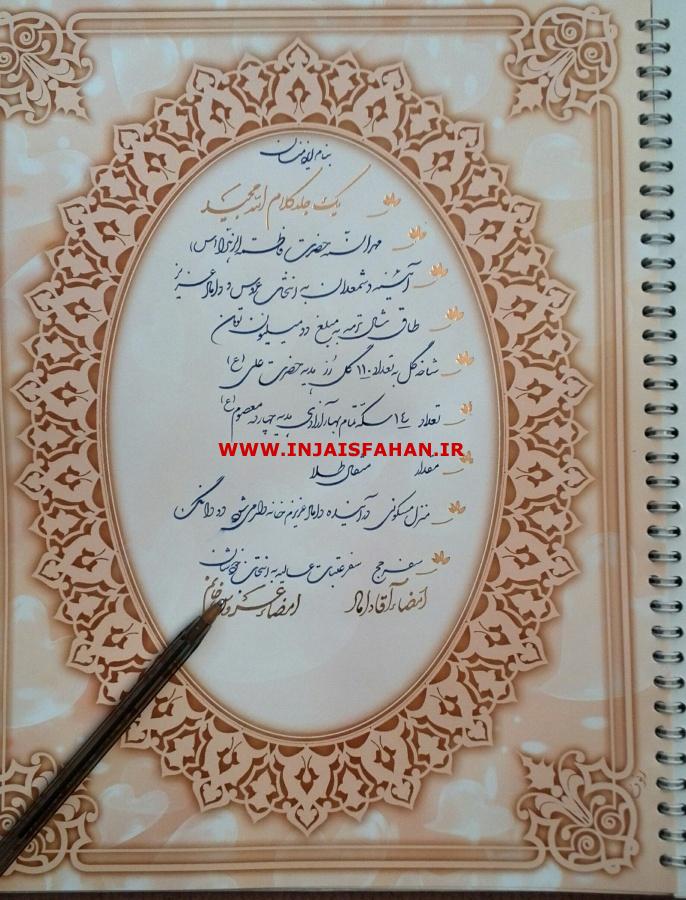 بنام ایزد منان
یک جلد کلام الله مجید
مهرالسنه حضرت فاطمه الزهرا (س)
آئینه و شمعدان به انتخاب عروس و داماد عزیز
طاقه شال ترمه به مبلغ دو میلیون تومان
شاخه گل به تعداد ۱۱۰ گل رز هدیه حضرت علی (ع)
تعداد ۱۴ سکه تمام بهار آزادی هدیه چهارده معصوم (ع)
WWW.INJAISFAHAN.IR
مقدار مثقال طلا
منزل مسکونی در آینده داماد عزیزم خانه دار می شود دو دانگ
سفر حج سفر عتبات عالیه به انتخاب خودشان
امضاء آقا داماد امضاء عروس خانم